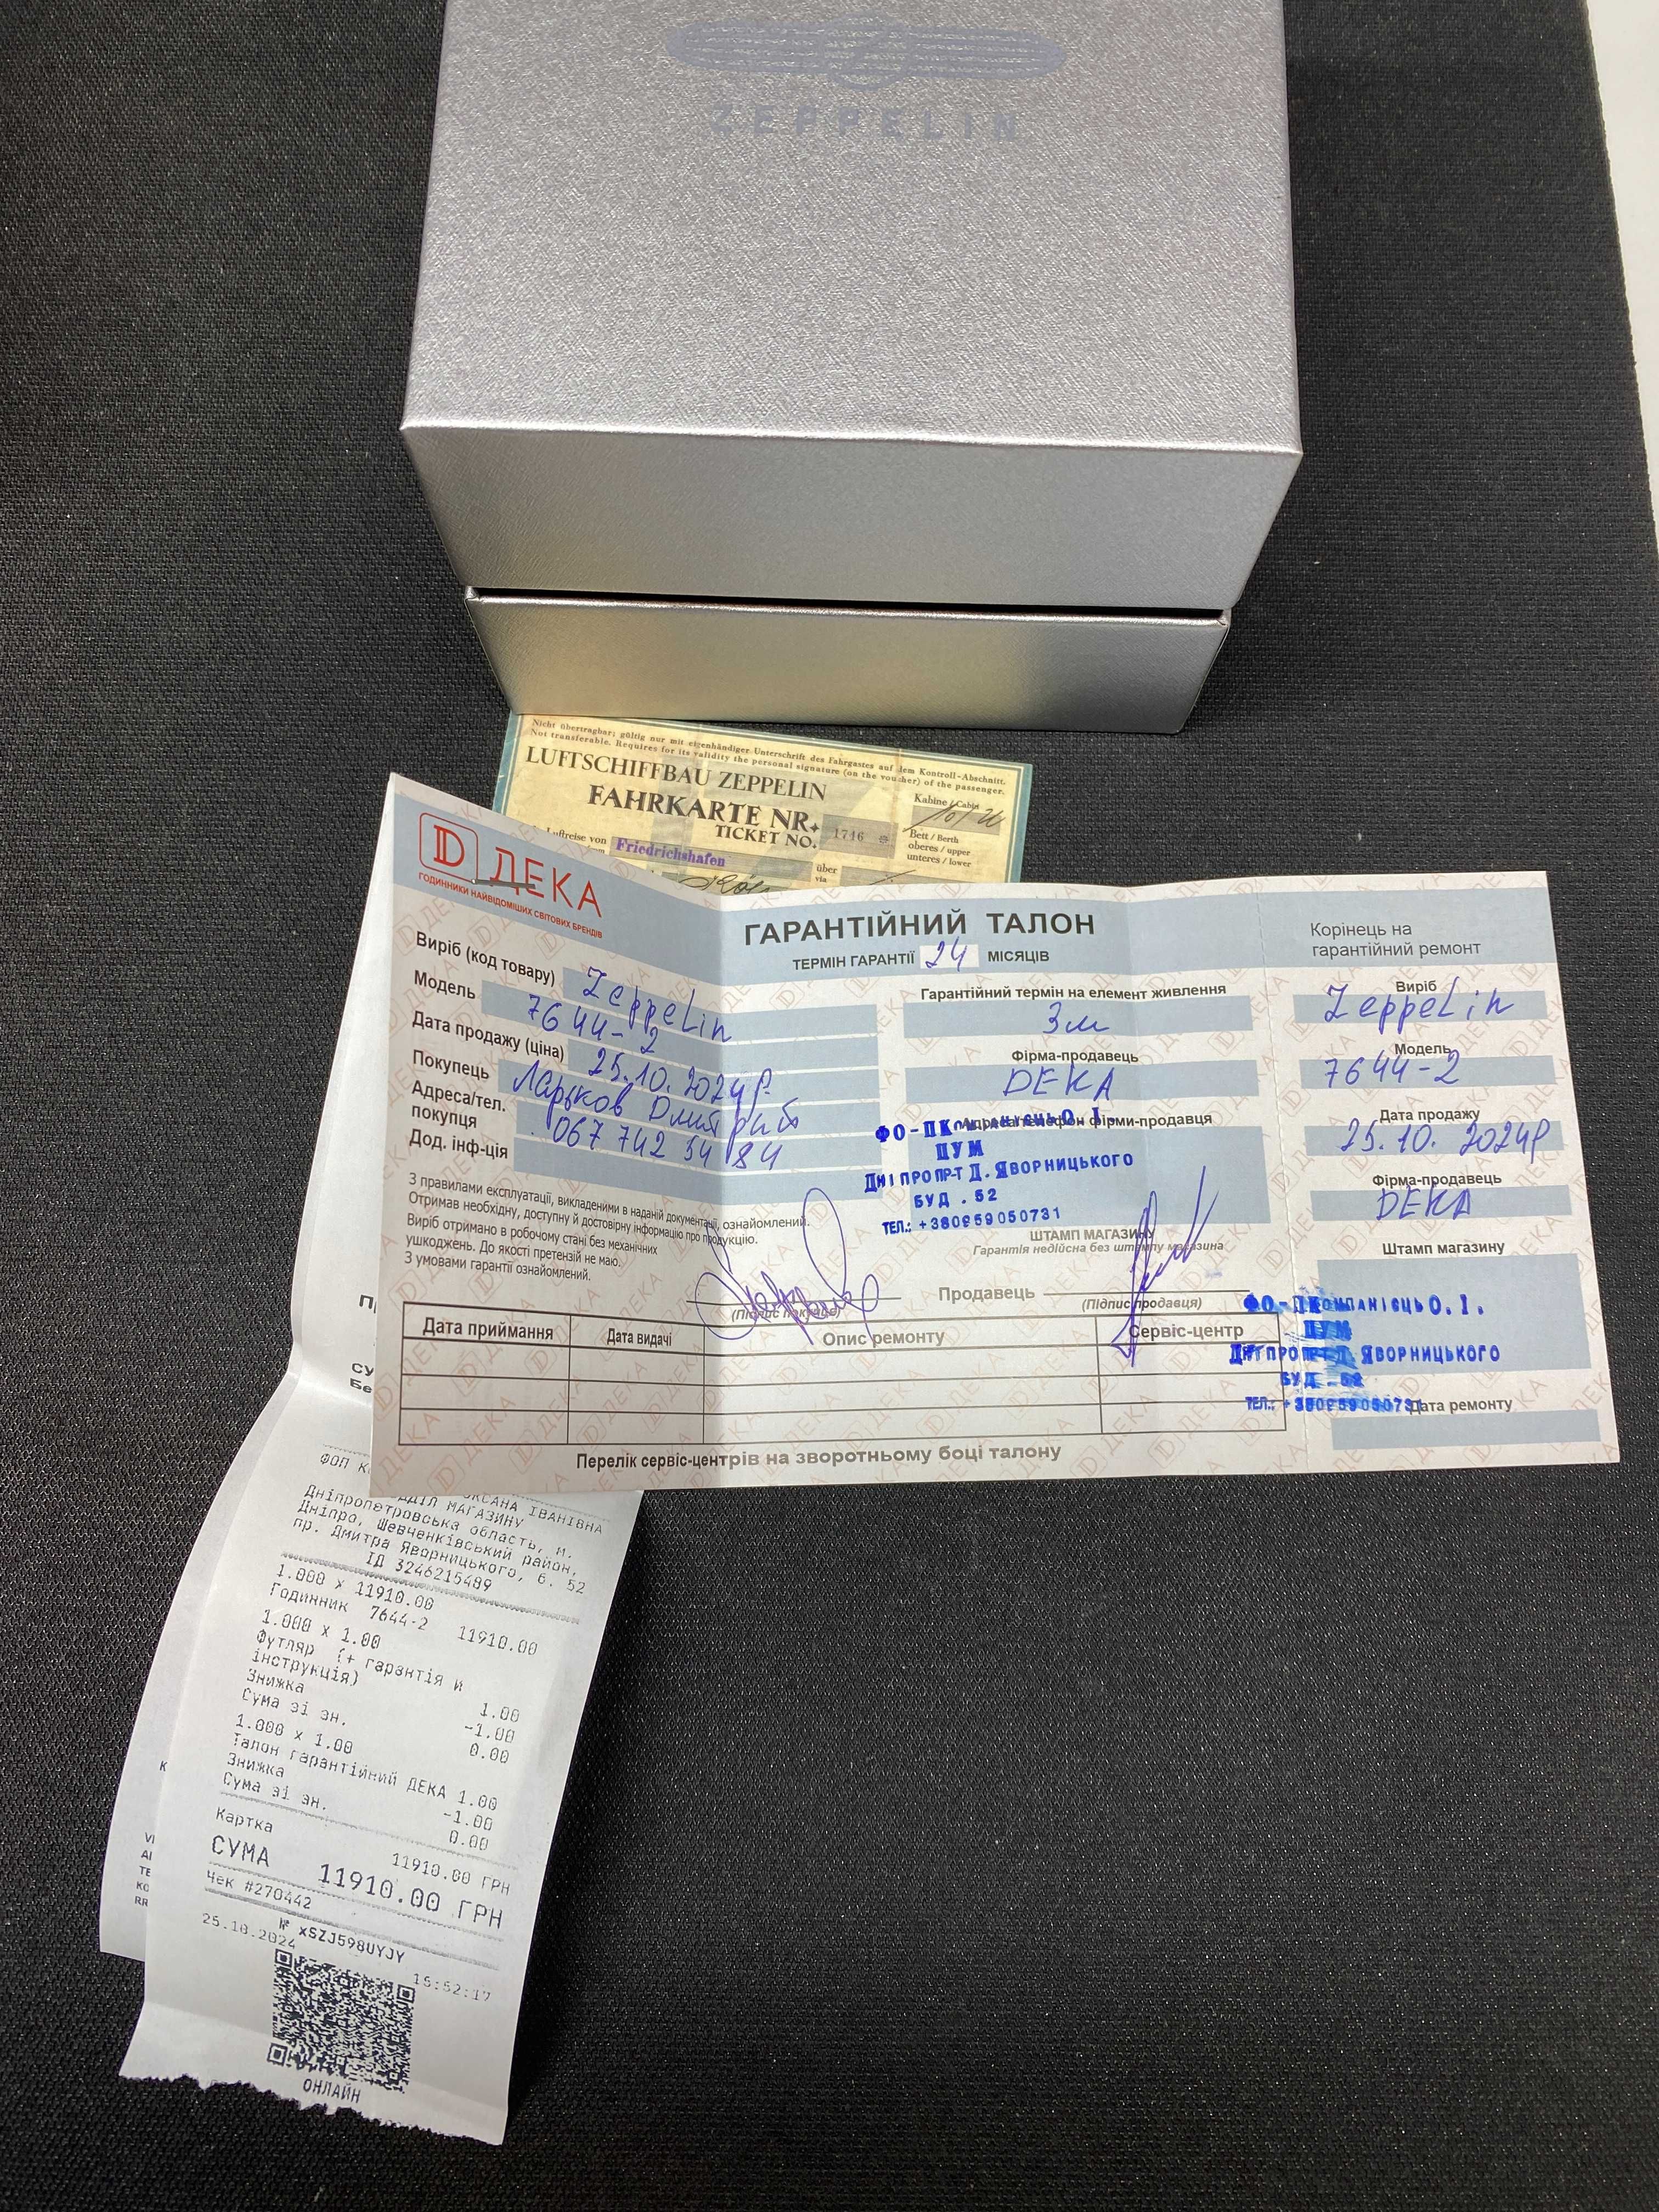 ZEPPELIN
Nicht übertragbar; gültig nur mit eigenhändiger Unterschrift des Fahrgastes auf dem Kontroll-Abschnitt.
Not transferable. Requires for its validity the personal signature (on the voucher) of the passenger.
LUFTSCHIFFBAU ZEPPELIN
FAHRKARTE NR.
TICKET NO.
1746
Kabine / Cabin
Bett / Berth
oberes / upper
unteres / lower
Luftreise von
Friedrichshafen
über
via
D ДЕКА
ГОДИННИКИ НАЙВІДОМІШИХ СВІТОВИХ БРЕНДІВ
ГАРАНТІЙНИЙ ТАЛОН
ТЕРМІН ГАРАНТІЇ 24 МІСЯЦІВ
Виріб (код товару) Zeppelin
Модель 7644-2
Дата продажу (ціна) 25.10.2024р.
Покупець Ларьков
Адреса/тел.
покупця 067 742 54 84
Дод. інф-ція
Гарантійний термін на елемент живлення
3м
Фірма-продавець
DEKA
Адреса/телефон фірми-продавця
ФО-П Компанієць О.І.
ЦУМ
ДНІПРО ПР-Т Д.ЯВОРНИЦЬКОГО
БУД .52
ТЕЛ.: +380959050731
ШТАМП МАГАЗИНУ
Гарантія недійсна без штампу магазина
З правилами експлуатації, викладеними в наданій документації, ознайомлений.
Отримав необхідну, доступну й достовірну інформацію про продукцію.
Виріб отримано в робочому стані без механічних
ушкоджень. До якості претензій не маю.
З умовами гарантії ознайомлений.
(Підпис покупця)
Продавець
(Підпис продавця)
Дата приймання
Дата видачі
Опис ремонту
Сервіс-центр
Перелік сервіс-центрів на зворотньому боці талону
Корінець на
гарантійний ремонт
Виріб
Zeppelin
Модель
7644-2
Дата продажу
25.10. 2024р
Фірма-продавець
DEKA
Штамп магазину
ФО-П КОМПАНІЄЦЬ О.І.
ЦУМ
ДНІПРО ПР-Т Д.ЯВОРНИЦЬКОГО
БУД .52
ТЕЛ.: +380959050731
Дата ремонту
ФОП К
ОКСАНА ІВАНІВНА
ВІДДІЛ МАГАЗИНУ
Дніпропетровська область, м.
Дніпро, Шевченківський район,
пр. Дмитра Яворницького, б. 52
ІД 3246215489
1.000 x 11910.00
Годинник 7644-2 11910.00
1.000 x 1.00
Футляр (+ гарантія и
інструкція) 1.00
Знижка -1.00
Сума зі зн. 0.00
1.000 x 1.00
Талон гарантійний ДЕКА 1.00
Знижка -1.00
Сума зі зн. 0.00
Картка 11910.00 ГРН
СУМА 11910.00 ГРН
Чек #270442
№ xSZJ598UYJY
25.10.2024 15:52:17
ОНЛАЙН